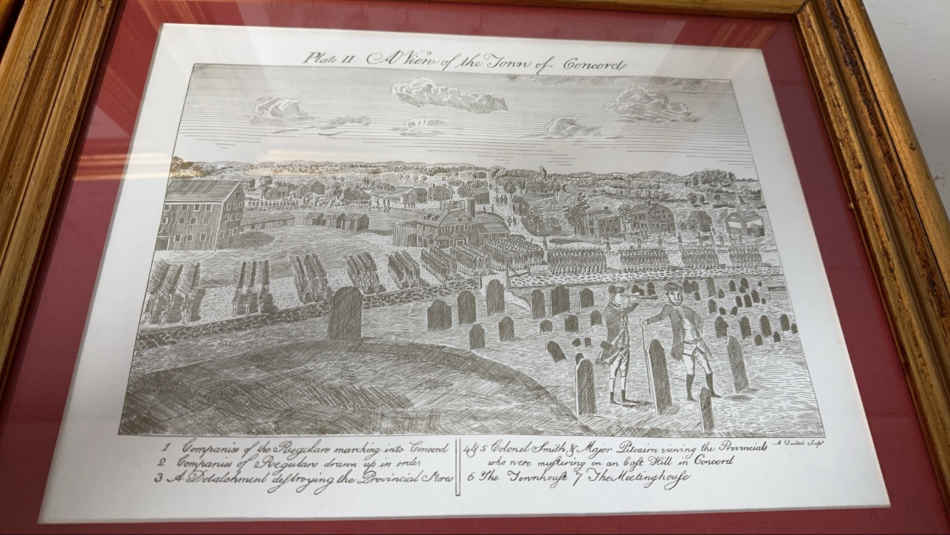 Plate II A View of the Town of Concord
A. Doolittle Sculpt
1 Companies of the Regulars marching into Concord
2 Companies of Regulars drawn up in order
3 A Detatchment destroying the Provincial Stores
4 & 5 Colonel Smith & Major Pitcairn viewing the Provincials
who were mustering on an East Hill in Concord
6 The Townhouse 7 The Meetinghouse